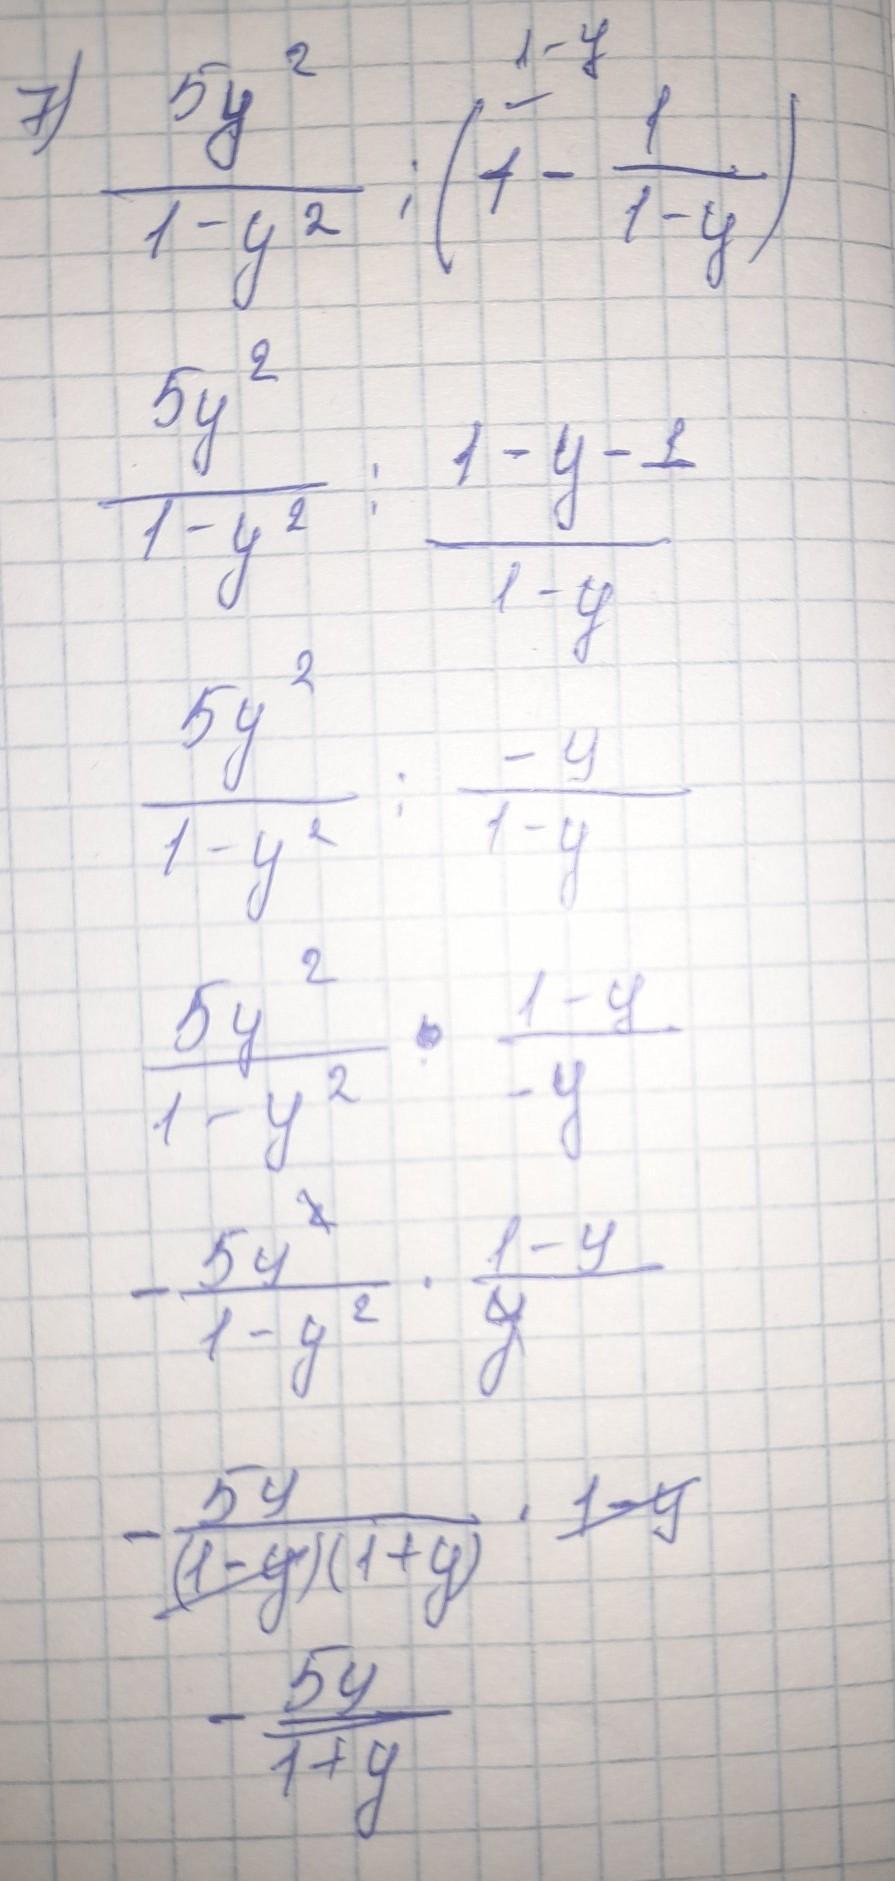 7) 5y² / (1-y²) : (1 - 1/(1-y)) 1-y
5y² / (1-y²) : (1-y-1) / (1-y)
5y² / (1-y²) : -y / (1-y)
5y² / (1-y²) · (1-y) / -y
- 5y² / (1-y²) · (1-y) / y
- 5y / (1-y)(1+y) · 1-y
- 5y / (1+y)